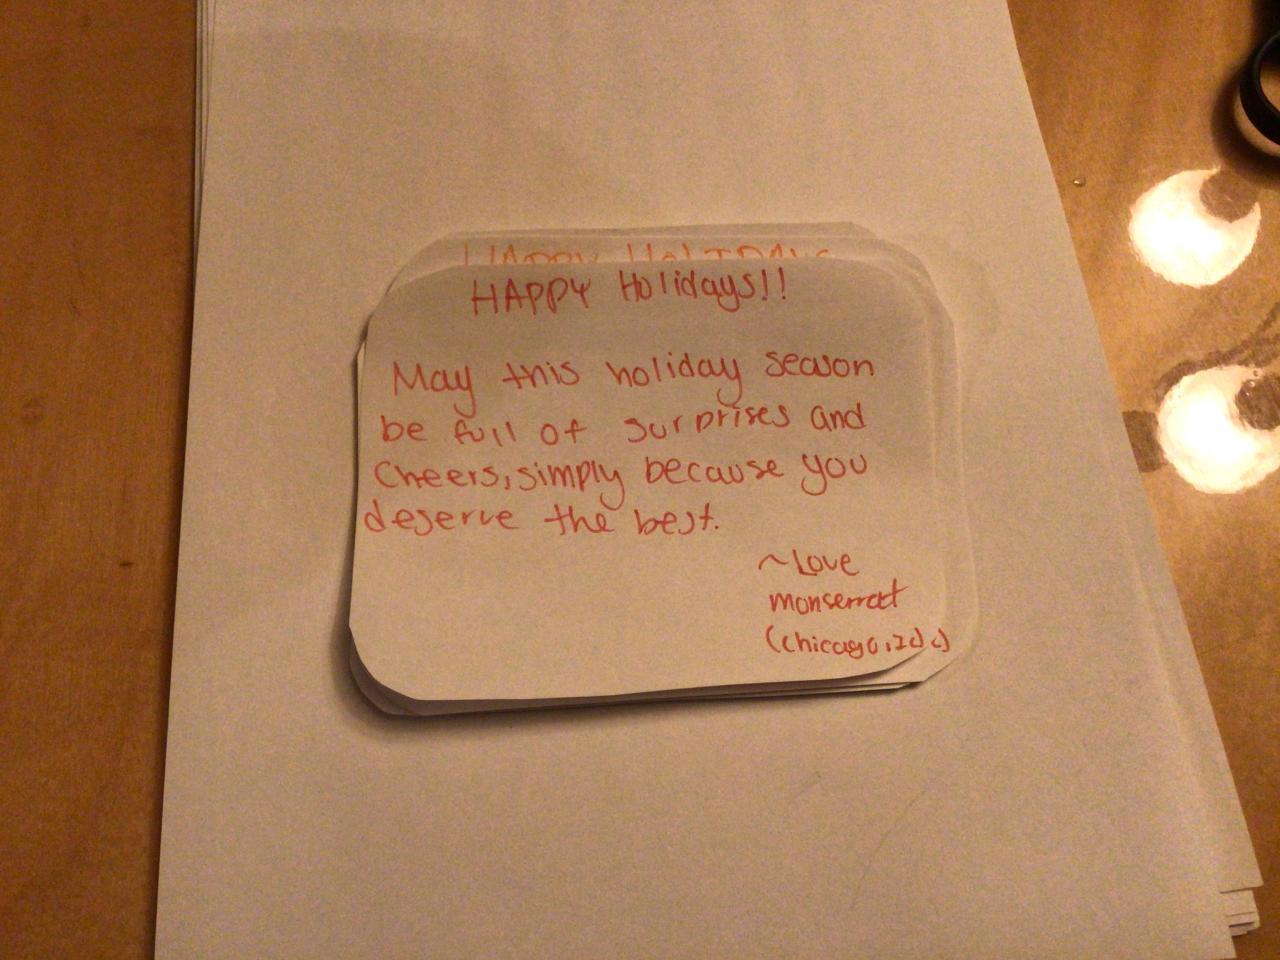 HAPPY HOLIDAYS
HAPPY Holidays!!
May this holiday season
be full of surprises and
Cheers, simply because you
deserve the best.
~Love
Monserrat
(Chicago,